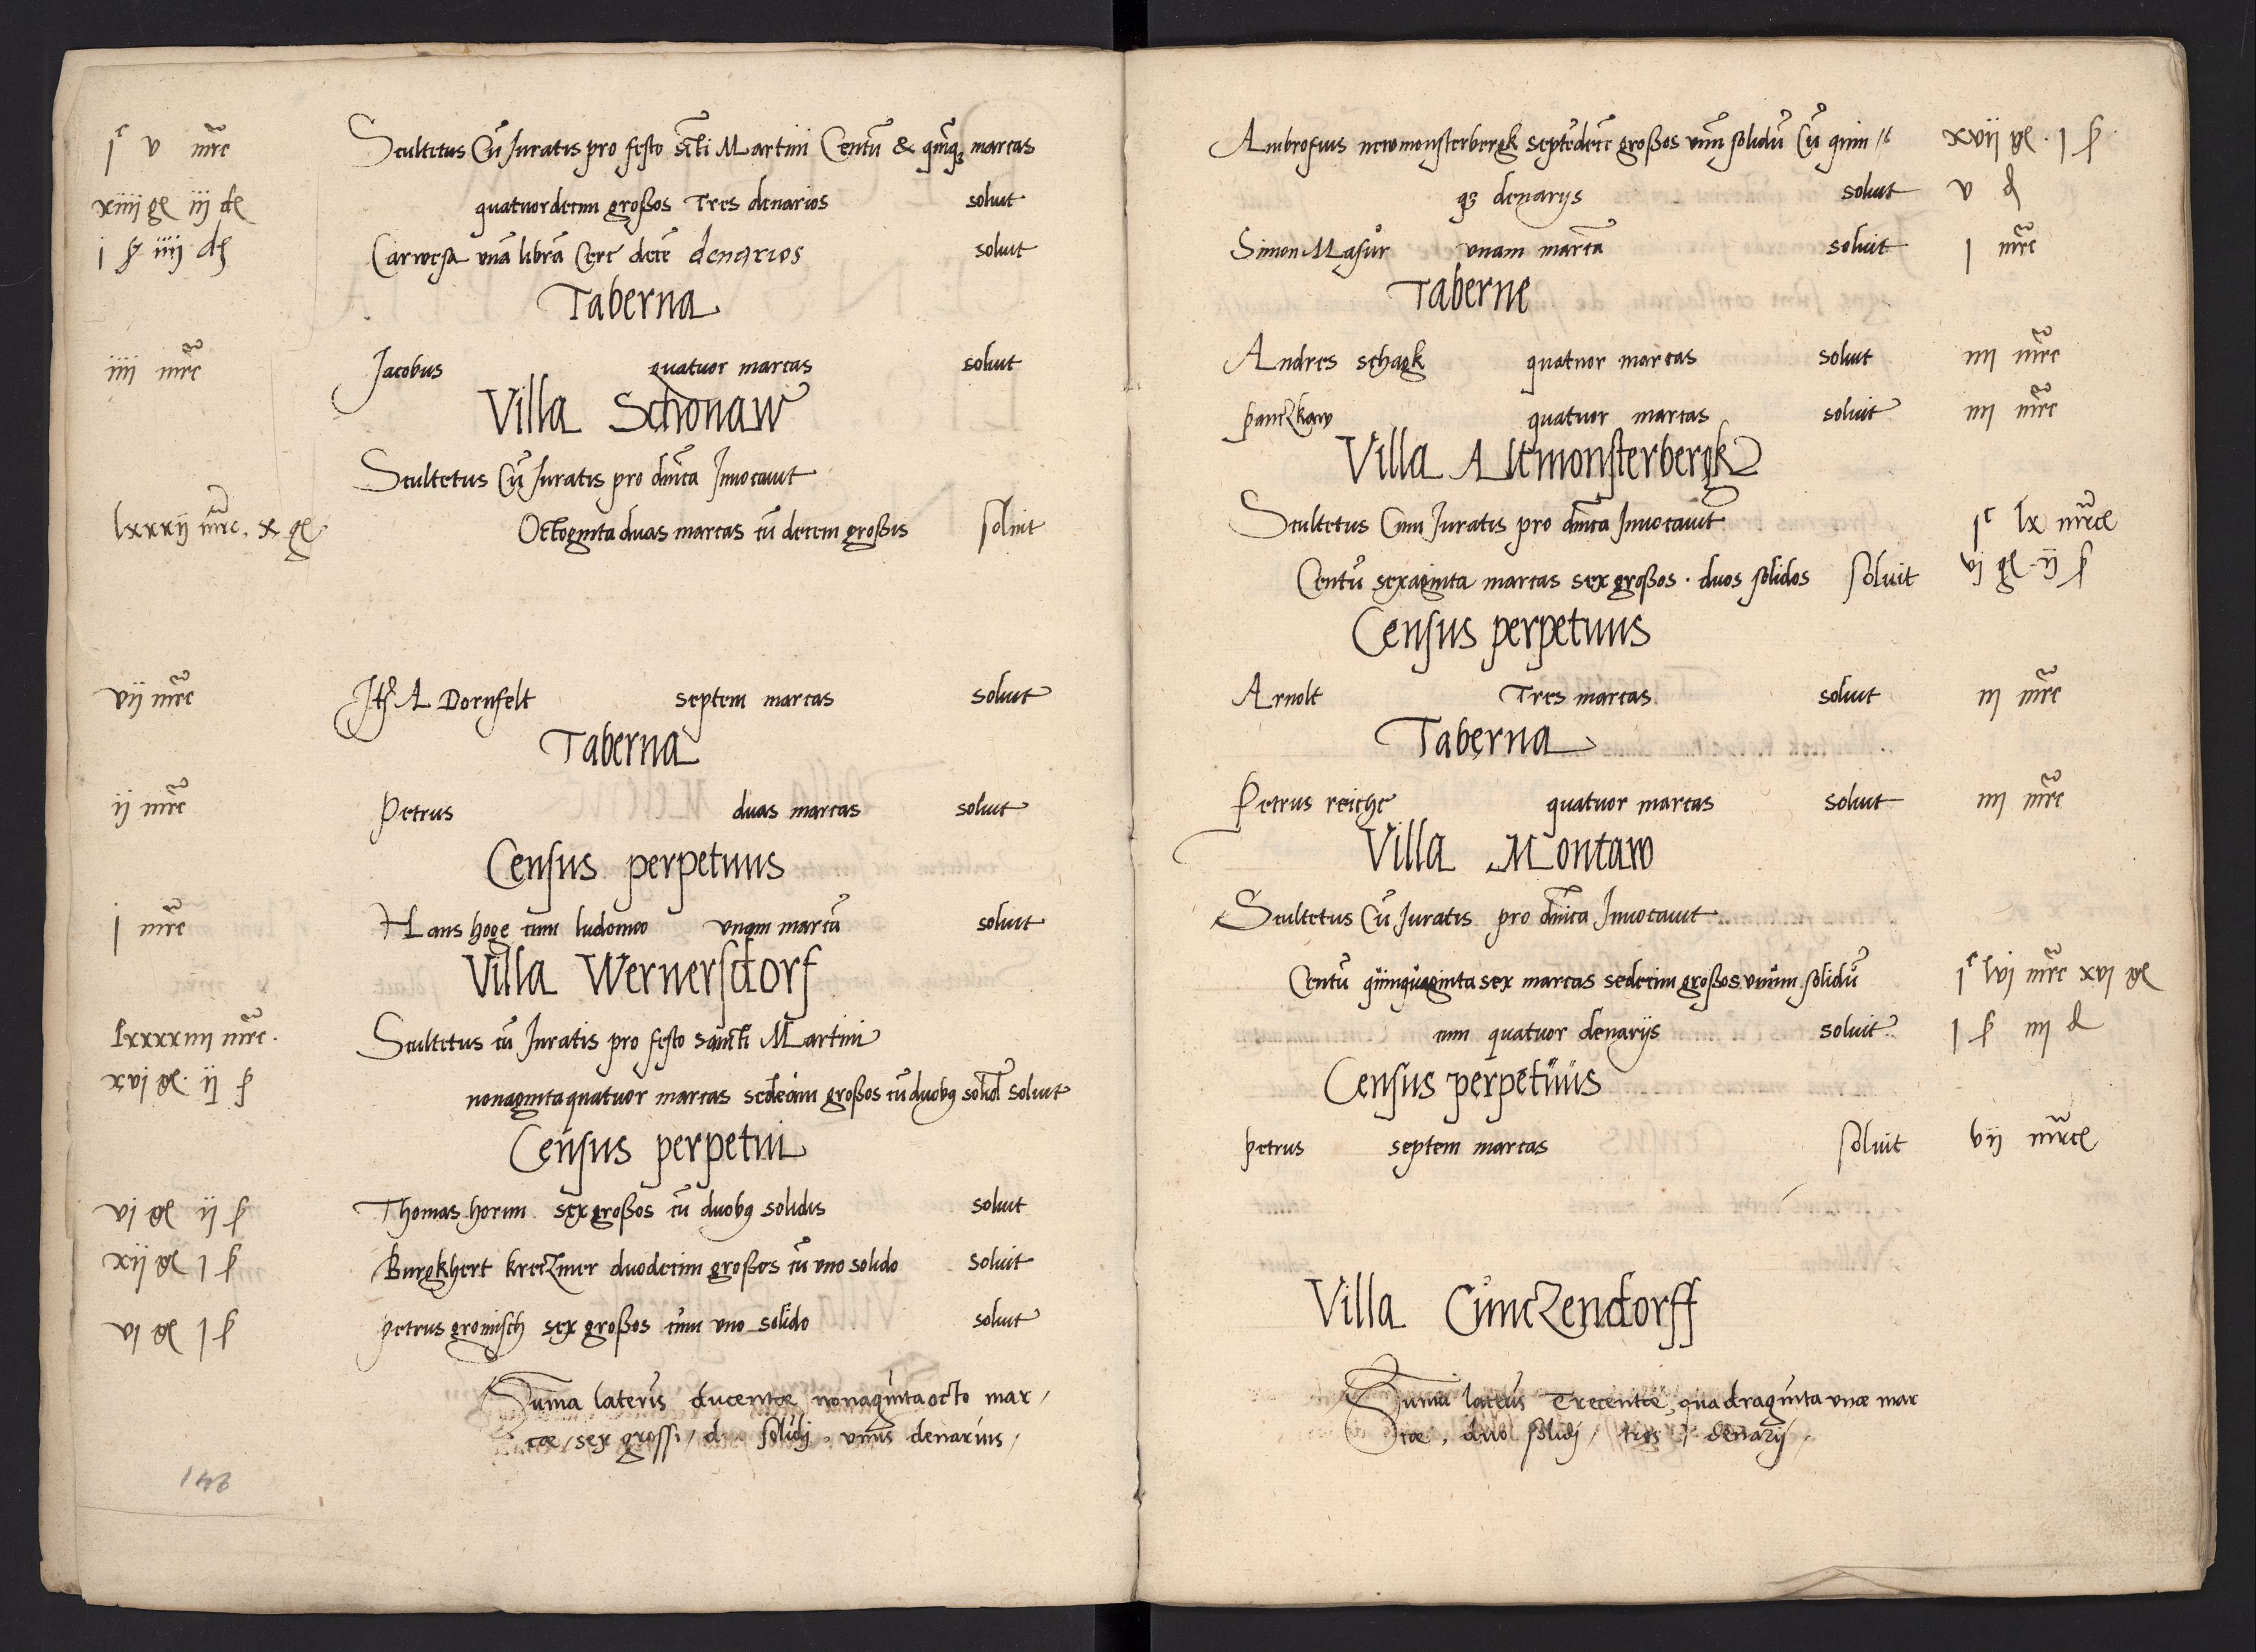 jc v mrc Scultetus Cū Juratis pro festo scti Martini Centū & qnqz marcas
xiiij gl iij dl quatuordecim großos Tres denarios soluit
j ß iiij dl Carwesa vnā librā Cere decē denarios soluit
Taberna
iiij mrc Jacobus quatuor marcas soluit
Villa Schonaw
Scultetus Cū Juratis pro dnica Inuocauit
lxxxij mrc. x gl Octoginta duas marcas cū decem großis soluit
vij mrc A Dornfelt septem marcas soluit
Taberna
ij mrc Petrus duas marcas soluit
Census perpetuus
j mrc Hans hoge cum ludomo vnam marcā soluit
Villa Wernersdorf
lxxxxiiij mrc. Scultetus cū Juratis pro festo sancti Martini
xvi gl. ij ß nonaginta quatuor marcas sedecim großos cū duobq solid soluit
Census perpetui
vi gl ij ß Thomas hornn sex großos cū duobq solidis soluit
xij gl j ß Burgkhert kreczmer duodecim großos cū vno solido soluit
vi gl j ß petrus gromisch sex großos cum vno solido soluit
Suma lateris ducentæ nonaginta octo mar/
cæ / sex grossi / solidj vnus denarius /
142
Ambrosius newmonsterbergk septēdecē großos vnū solidū Cū quin xvij gl. j ß
qz denarijs soluit v d
Simon Masur vnam marcā soluit j mrc
Taberne
Andres schagk quatuor marcas soluit iiij mrc
panczkaw quatuor marcas soluit iiij mrc
Villa Altmonsterbergk
Scultetus Cum Juratis pro dnica Inuocauit jc lx mrcl
Centū sexaginta marcas sex großos. duos solidos soluit vj gl. ij ß
Census perpetuus
Arnolt Tres marcas soluit iij mrc
Taberna
Petrus reiche quatuor marcas soluit iiij mrc
Villa Montaw
Scultetus Cū Juratis pro dnica Inuocauit
Centū quinquaginta sex marcas sedecim großos vnum solidū jc lvi mrc xvi gl
cum quatuor denarijs soluit j ß iiij d
Census perpetuus
petrus septem marcas soluit vij mrcl
Villa Cunczendorff
Suma lateris Trecentæ, quadraginta vnæ mar
cæ, duo solidj / tres denarij.